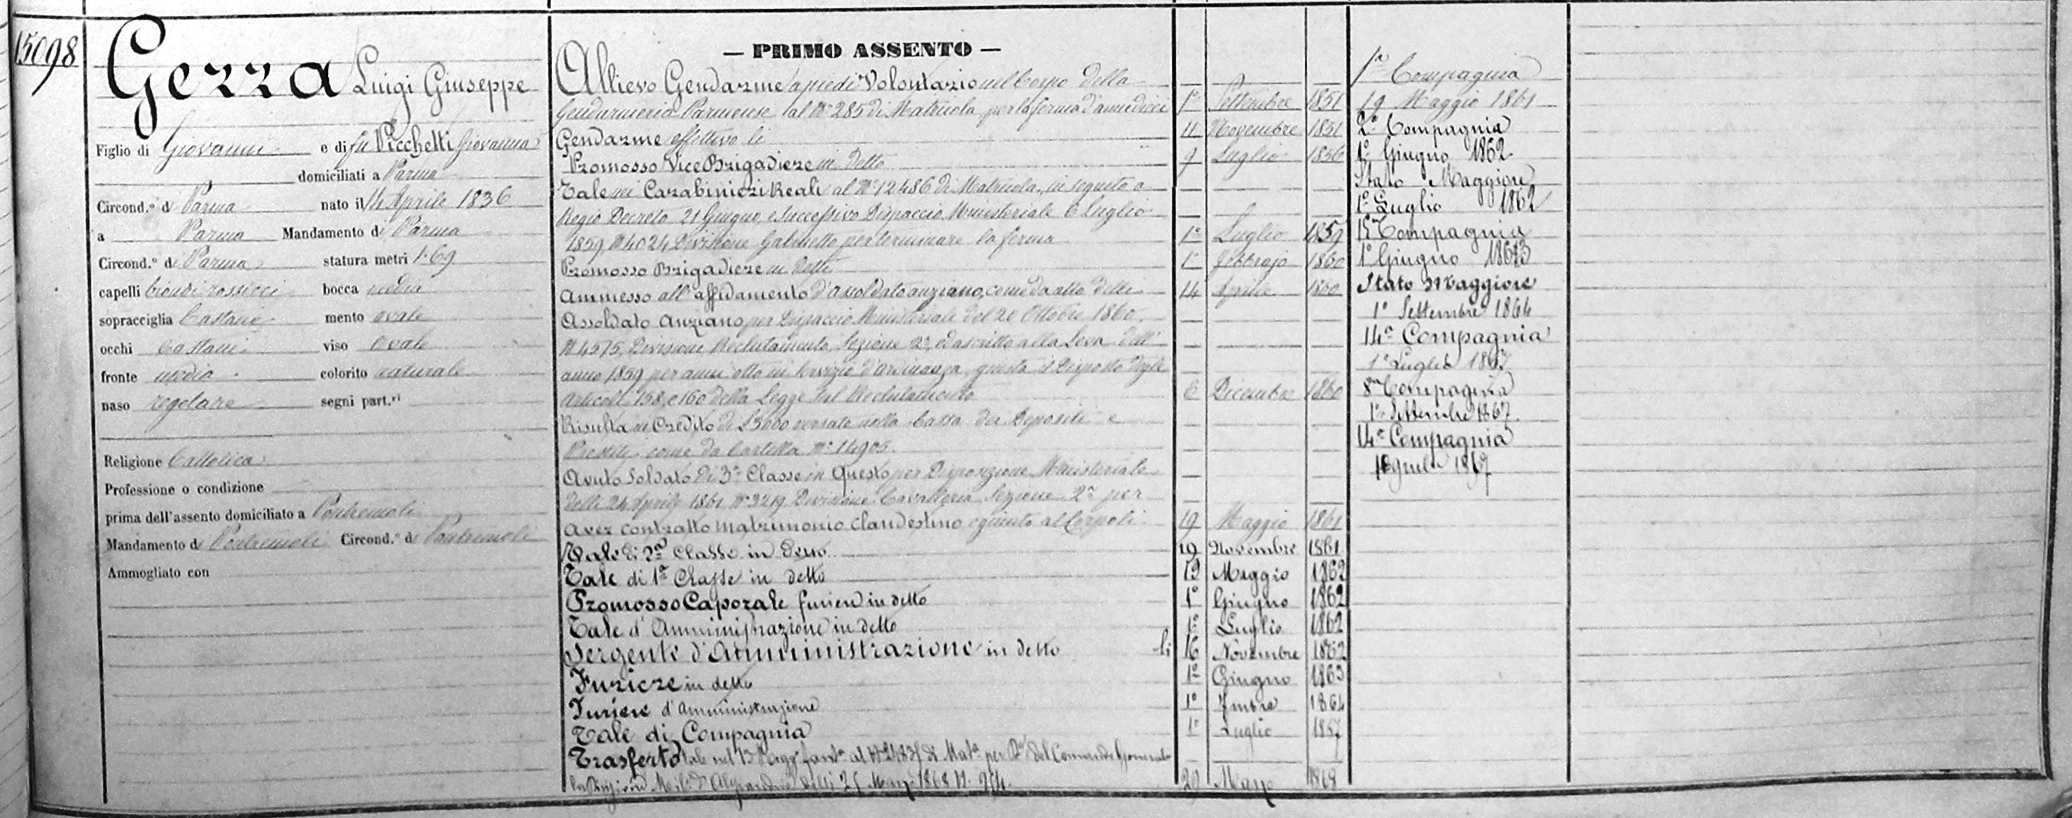 15098
Gerra Luigi Giuseppe
Figlio di Giovanni e di fu Picchetti Giovanna
domiciliati a Parma
Circond.º di Parma nato il 14 Aprile 1836
a Parma Mandamento di Parma
Circond.º di Parma statura metri 1.69
capelli biondi rossicci bocca media
sopracciglia Castane mento ovale
occhi Castani viso Ovale
fronte media colorito naturale
naso regolare segni part.ri
Religione Cattolica
Professione o condizione
prima dell'assento domiciliato a Pontremoli
Mandamento di Pontremoli Circond.º di Pontremoli
Ammogliato con
— PRIMO ASSENTO —
Allievo Gendarme a piedi Volontario nel Corpo della
Gendarmeria Parmense al Nº 285 di Matricola, per la ferma d'anni dieci 1º Settembre 1851
Gendarme effettivo li 11 Novembre 1851
Promosso Vice Brigadiere in detto 9 Luglio 1856
Tale nei Carabinieri Reali al Nº 12486 di Matricola, in seguito a
Regio Decreto 21 Giugno, e successivo Dispaccio Ministeriale 6 Luglio
1859 Nº 4024 Divisione Gabinetto per terminare la ferma 1º Luglio 1859
Promosso Brigadiere in detti 1º Febbrajo 1860
Ammesso all'affidamento d'assoldato anziano, come da atto delli 14 Aprile 1860
Assoldato Anziano per Dispaccio Ministeriale del 20 Ottobre 1860,
Nº 4575, Divisione Reclutamento, Sezione 2ª, ed ascritto alla Leva dell'
anno 1859 per anni otto in servizio d'ordinanza, giusta il disposto degli
articoli 158, e 160 della Legge sul Reclutamento 6 Dicembre 1860
Risulta in Credito di £ 3000 versate nella Cassa dei Depositi e
Prestiti come da Cartella Nº 14905.
Avuto Soldato di 3ª Classe in Questo per Disposizione Ministeriale
delli 24 Aprile 1861 Nº 3219 Divisione Cavalleria Sezione 2ª per
aver contratto matrimonio clandestino e giunto al Corpo li 19 Maggio 1861
Tale di 2ª Classe in detto 19 Novembre 1861
Tale di 1ª Classe in detto 19 Maggio 1862
Promosso Caporale furiere in detto 1º Giugno 1862
Tale d'Amministrazione in detto 1º Luglio 1862
Sergente d'Amministrazione in detto li 16 Novembre 1862
Furiere in detto 1º Giugno 1863
Furiere d'Amministrazione 1º 7mbre 1864
Tale di Compagnia 1º Luglio 1867
Trasferto tale nel 13 Regg.º fant.ª al Nº di Mat.ª per D.º del Comando Generale
la Divisione Mil.e d'Alessandria delli 25 Marzo 1868 Nº 29 Marzo 1868
1ª Compagnia
19 Maggio 1861
2ª Compagnia
1º Giugno 1862
Stato Maggiore
1º Luglio 1862
15ª Compagnia
1º Giugno 1863
Stato Maggiore
1º Settembre 1864
14ª Compagnia
1º Luglio 1867
8ª Compagnia
1º Settembre 1867.
14ª Compagnia
1867